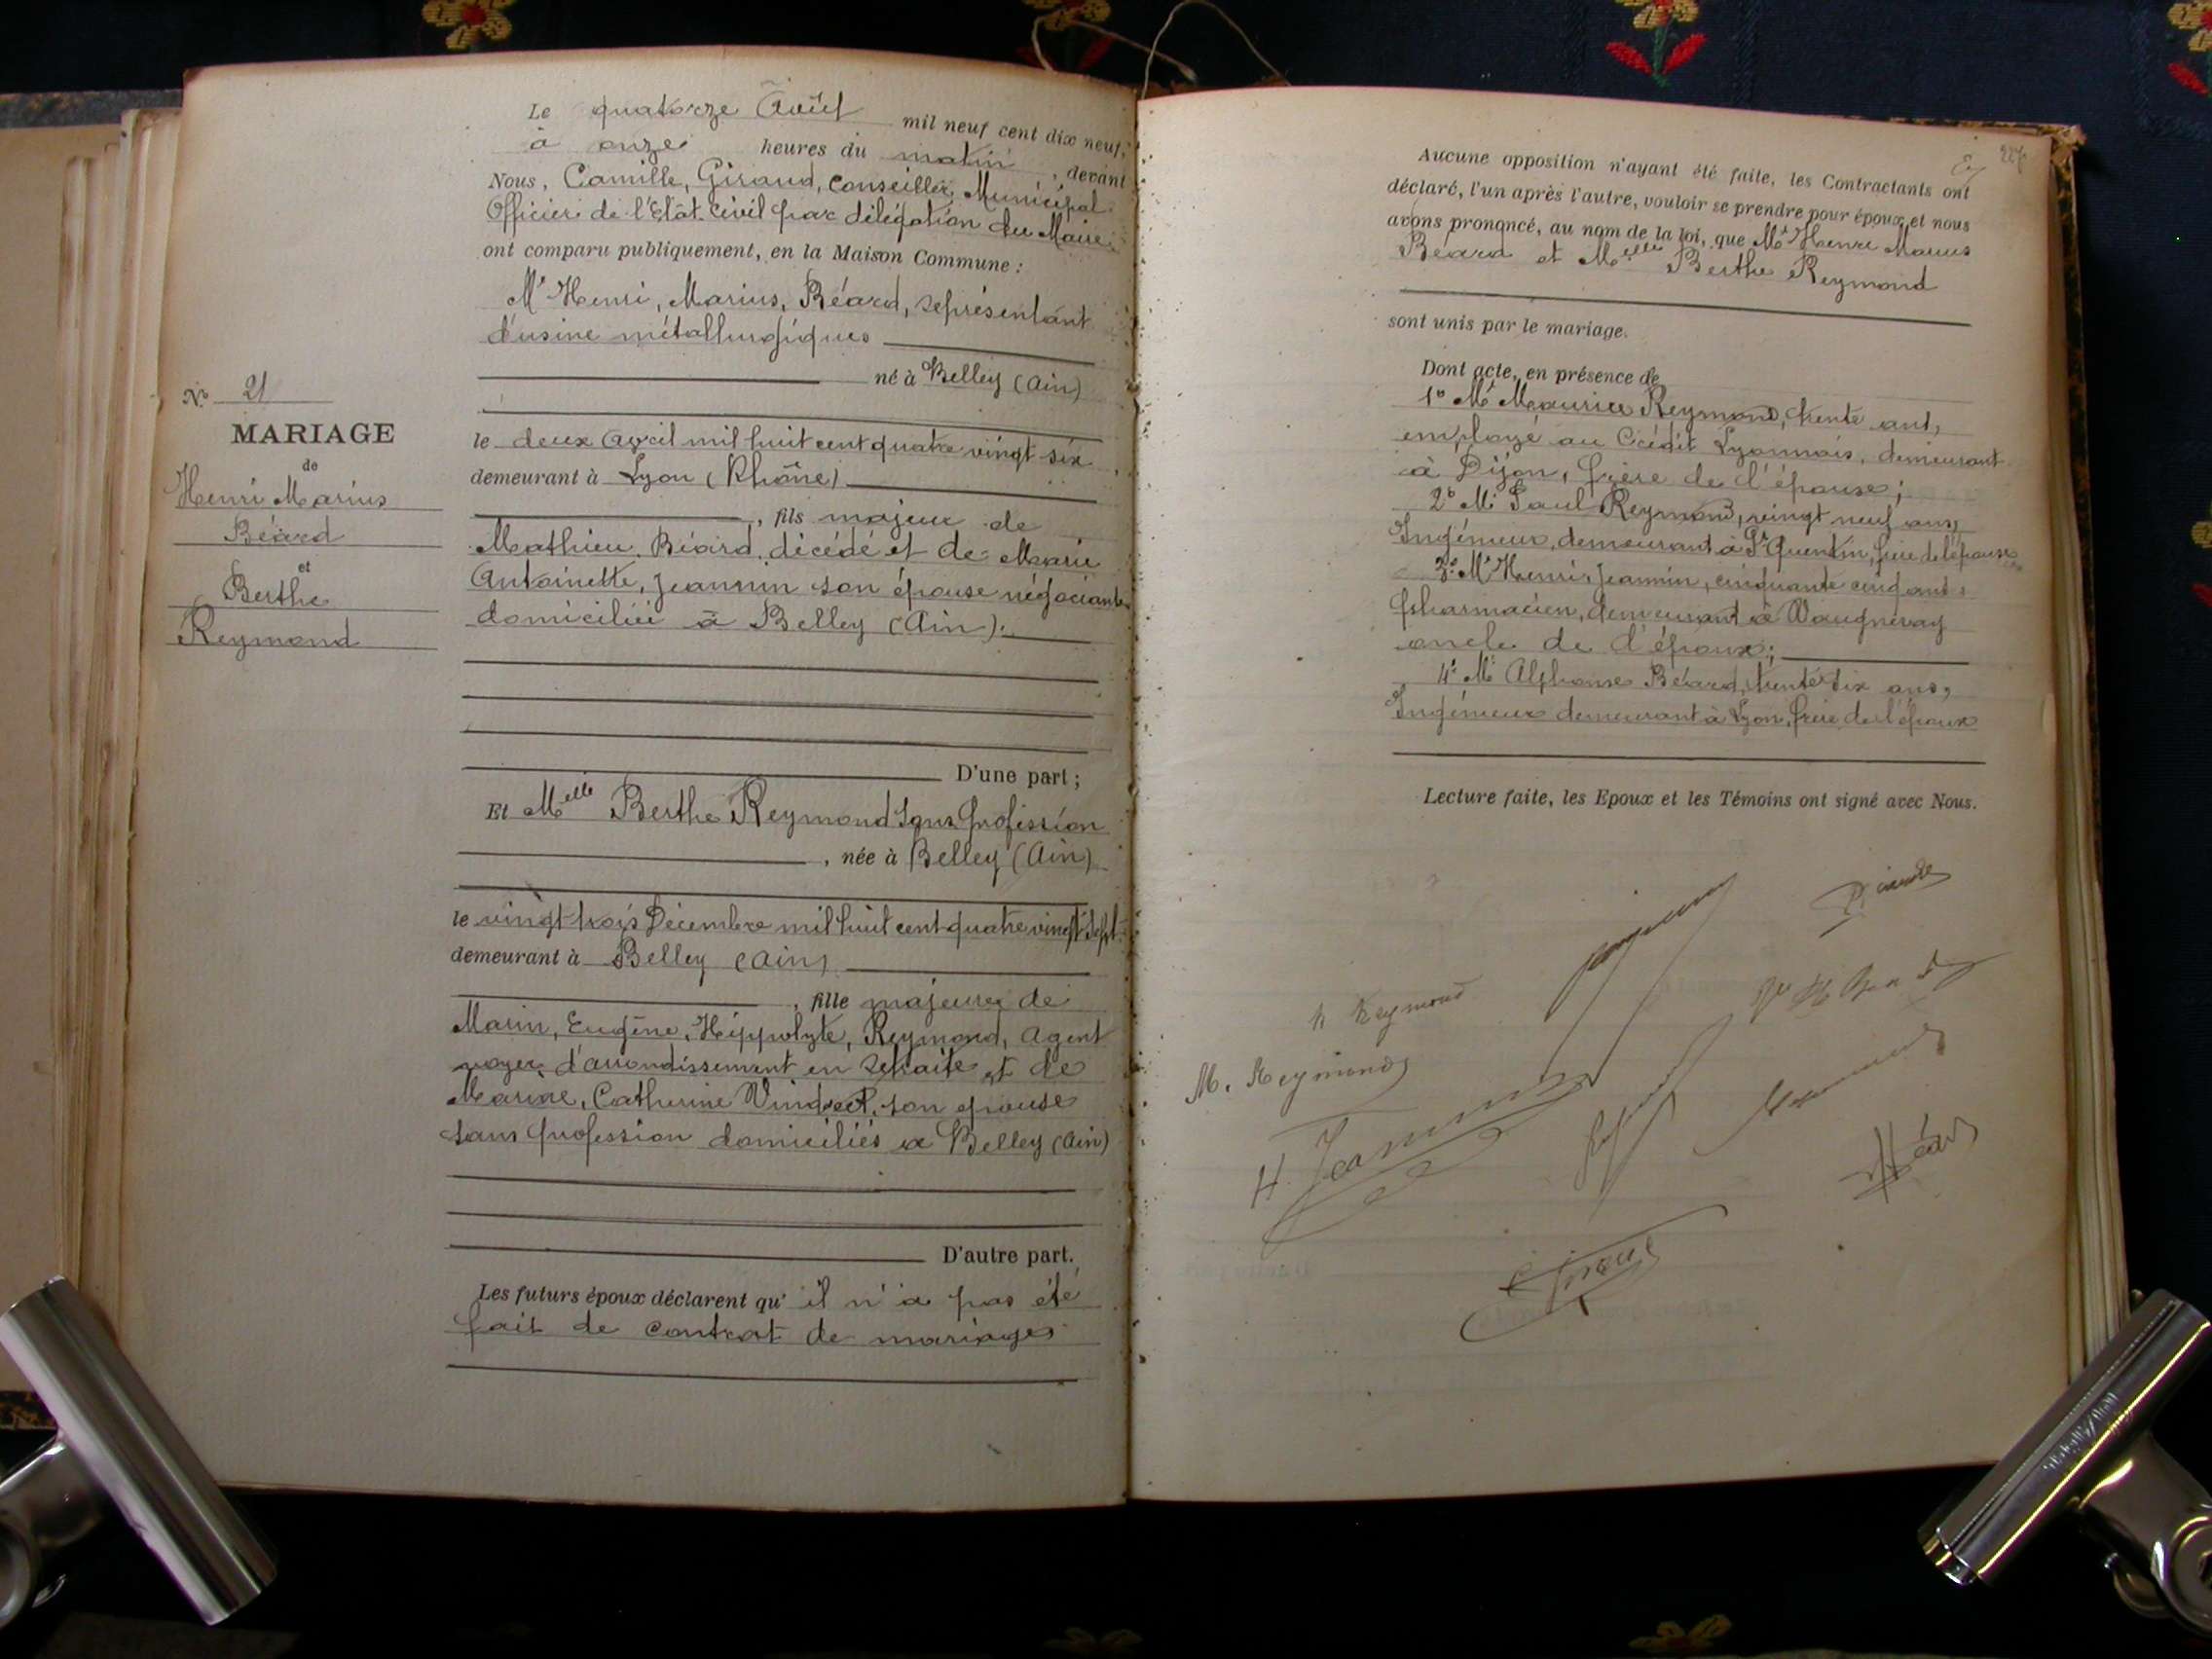 Le quatorze Août mil neuf cent dix neuf,
à onze heures du matin, devant
Nous, Camille, Giraud, Conseiller Municipal
Officier de l'Etat Civil par délégation du Maire
ont comparu publiquement, en la Maison Commune :
Mr Henri, Marius, Béard, représentant
d'usine métallurgiques
né à Belley (Ain)
le deux Avril mil huit cent quatre vingt six
demeurant à Lyon (Rhône)
, fils majeur de
Mathieu, Béard, décédé et de Marie
Antoinette, Jeannin son épouse négociante
domiciliée à Belley (Ain).
D'une part ;
Et Melle Berthe Reymond Sans profession
, née à Belley (Ain)
le vingt trois Décembre mil huit cent quatre vingt sept
demeurant à Belley (Ain)
, fille majeure de
Marin, Eugène, Hippolyte, Reymond, Agent
voyer d'arrondissement en retraite et de
Marine, Catherine son épouse
sans profession domiciliés à Belley (Ain)
D'autre part.
Les futurs époux déclarent qu' il n'a pas été
fait de contrat de mariage
No 21
MARIAGE
de
Henri Marius
Béard
et
Berthe
Reymond
Aucune opposition n'ayant été faite, les Contractants ont
déclaré, l'un après l'autre, vouloir se prendre pour époux, et nous
avons prononcé, au nom de la loi, que Mr Henri Marius
Béard et Melle Berthe Reymond
sont unis par le mariage.
Dont acte, en présence de
1o Mr Maurice Reymond, trente ans,
employé au Crédit Lyonnais, demeurant
à Dijon, frère de l'épouse ;
2o Mr Paul Reymond, vingt neuf ans,
Ingénieur, demeurant à St Quentin, frère de l'épouse
3o Mr Henri Jeannin, cinquante cinq ans
pharmacien, demeurant à Vaugneray
oncle de l'époux ;
4o Mr Alphonse Béard, trente six ans,
Ingénieur demeurant à Lyon, frère de l'époux
Lecture faite, les Epoux et les Témoins ont signé avec Nous.
Reymond
M. Reymond
H. Jeannin